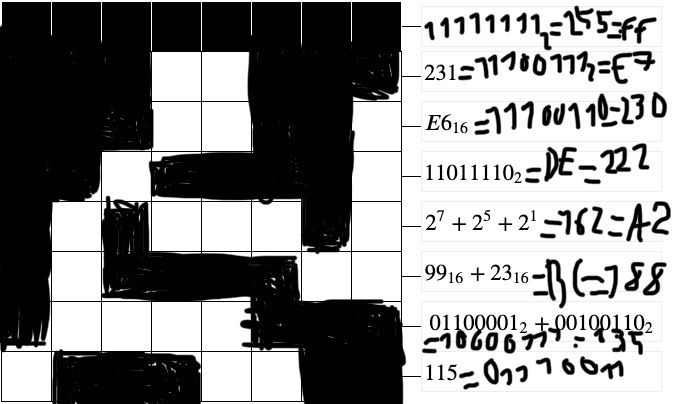 11111111₂=255=FF
231=11100111₂=E7
E6₁₆=11100110=230
11011110₂=DE=222
2⁷ + 2⁵ + 2¹=162=A2
99₁₆ + 23₁₆=BC=188
01100001₂ + 00100110₂
=10000111=135
115=01110011